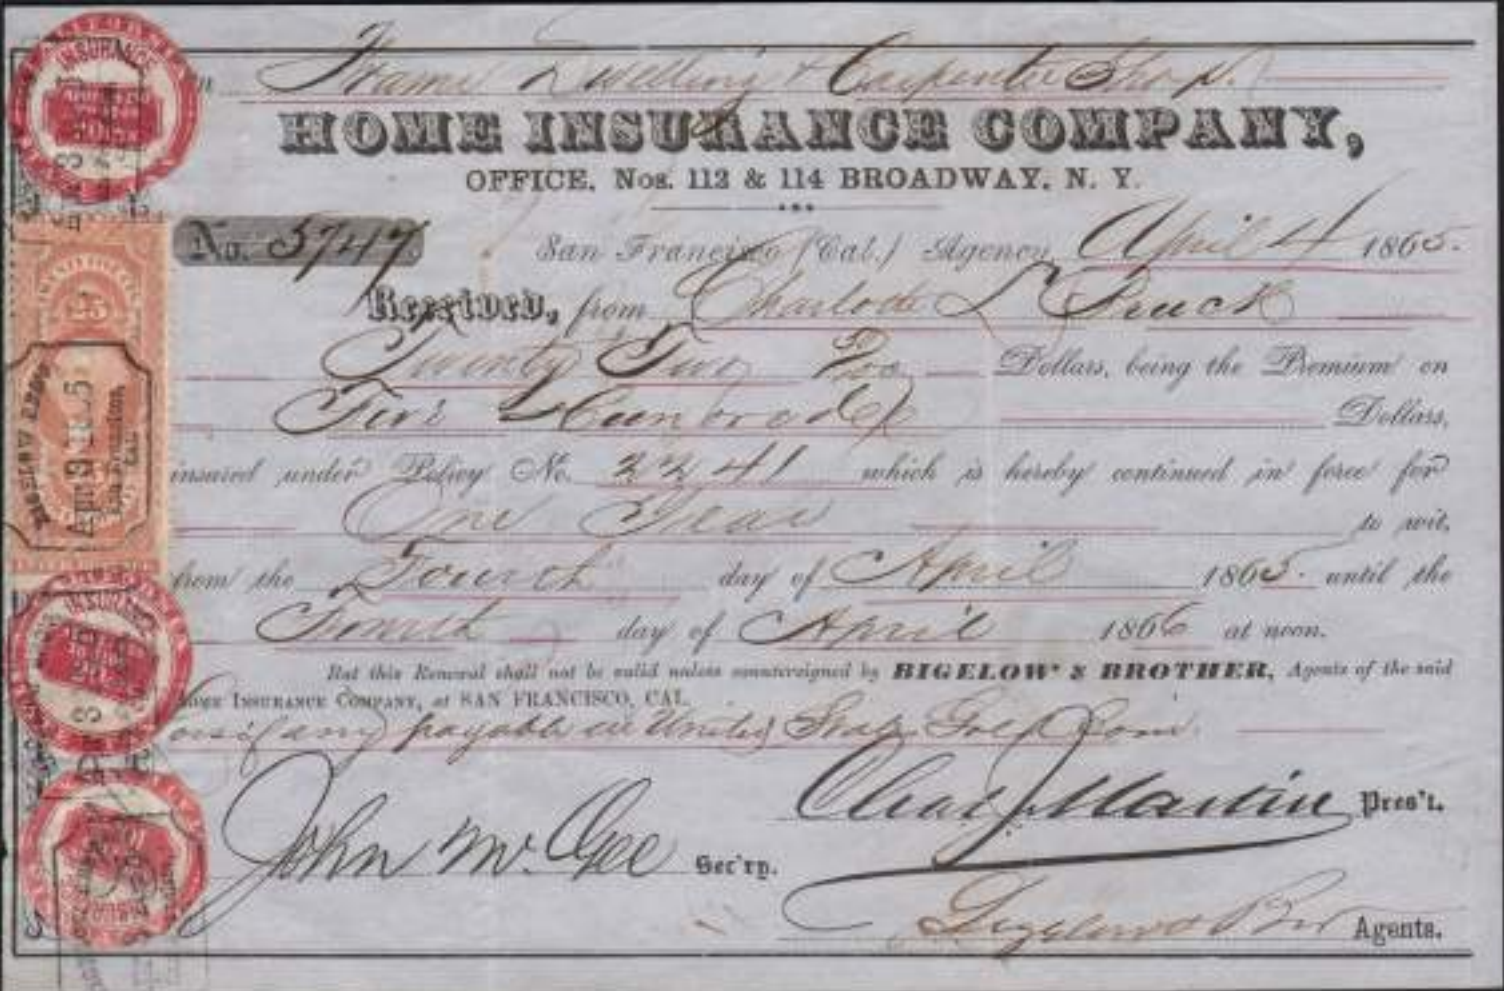 Frame Dwelling & Carpenter Shop.
HOME INSURANCE COMPANY,
OFFICE, Nos. 112 & 114 BROADWAY, N. Y.
No. 5747.
San Francisco (Cal.) Agency, April 4 1865.
Received, from Charlotte L
Twenty Two 50/100 Dollars, being the Premium on
Five Hundred Dollars,
insured under Policy No. 2241 which is hereby continued in force for
One Year to wit,
from the Fourth day of April 1865. until the
Fourth day of April 1866 at noon.
But this Renewal shall not be valid unless countersigned by BIGELOW & BROTHER, Agents of the said
HOME INSURANCE COMPANY, at SAN FRANCISCO, CAL.
Loss if any payable in United States Gold Coin.
Chas J Martin Pres't.
John McGee Sec'ry.
Bigelow & Bro Agents.
INSURANCE
25
BIGELOW & BRO
San Francisco,
CAL
INSURANCE